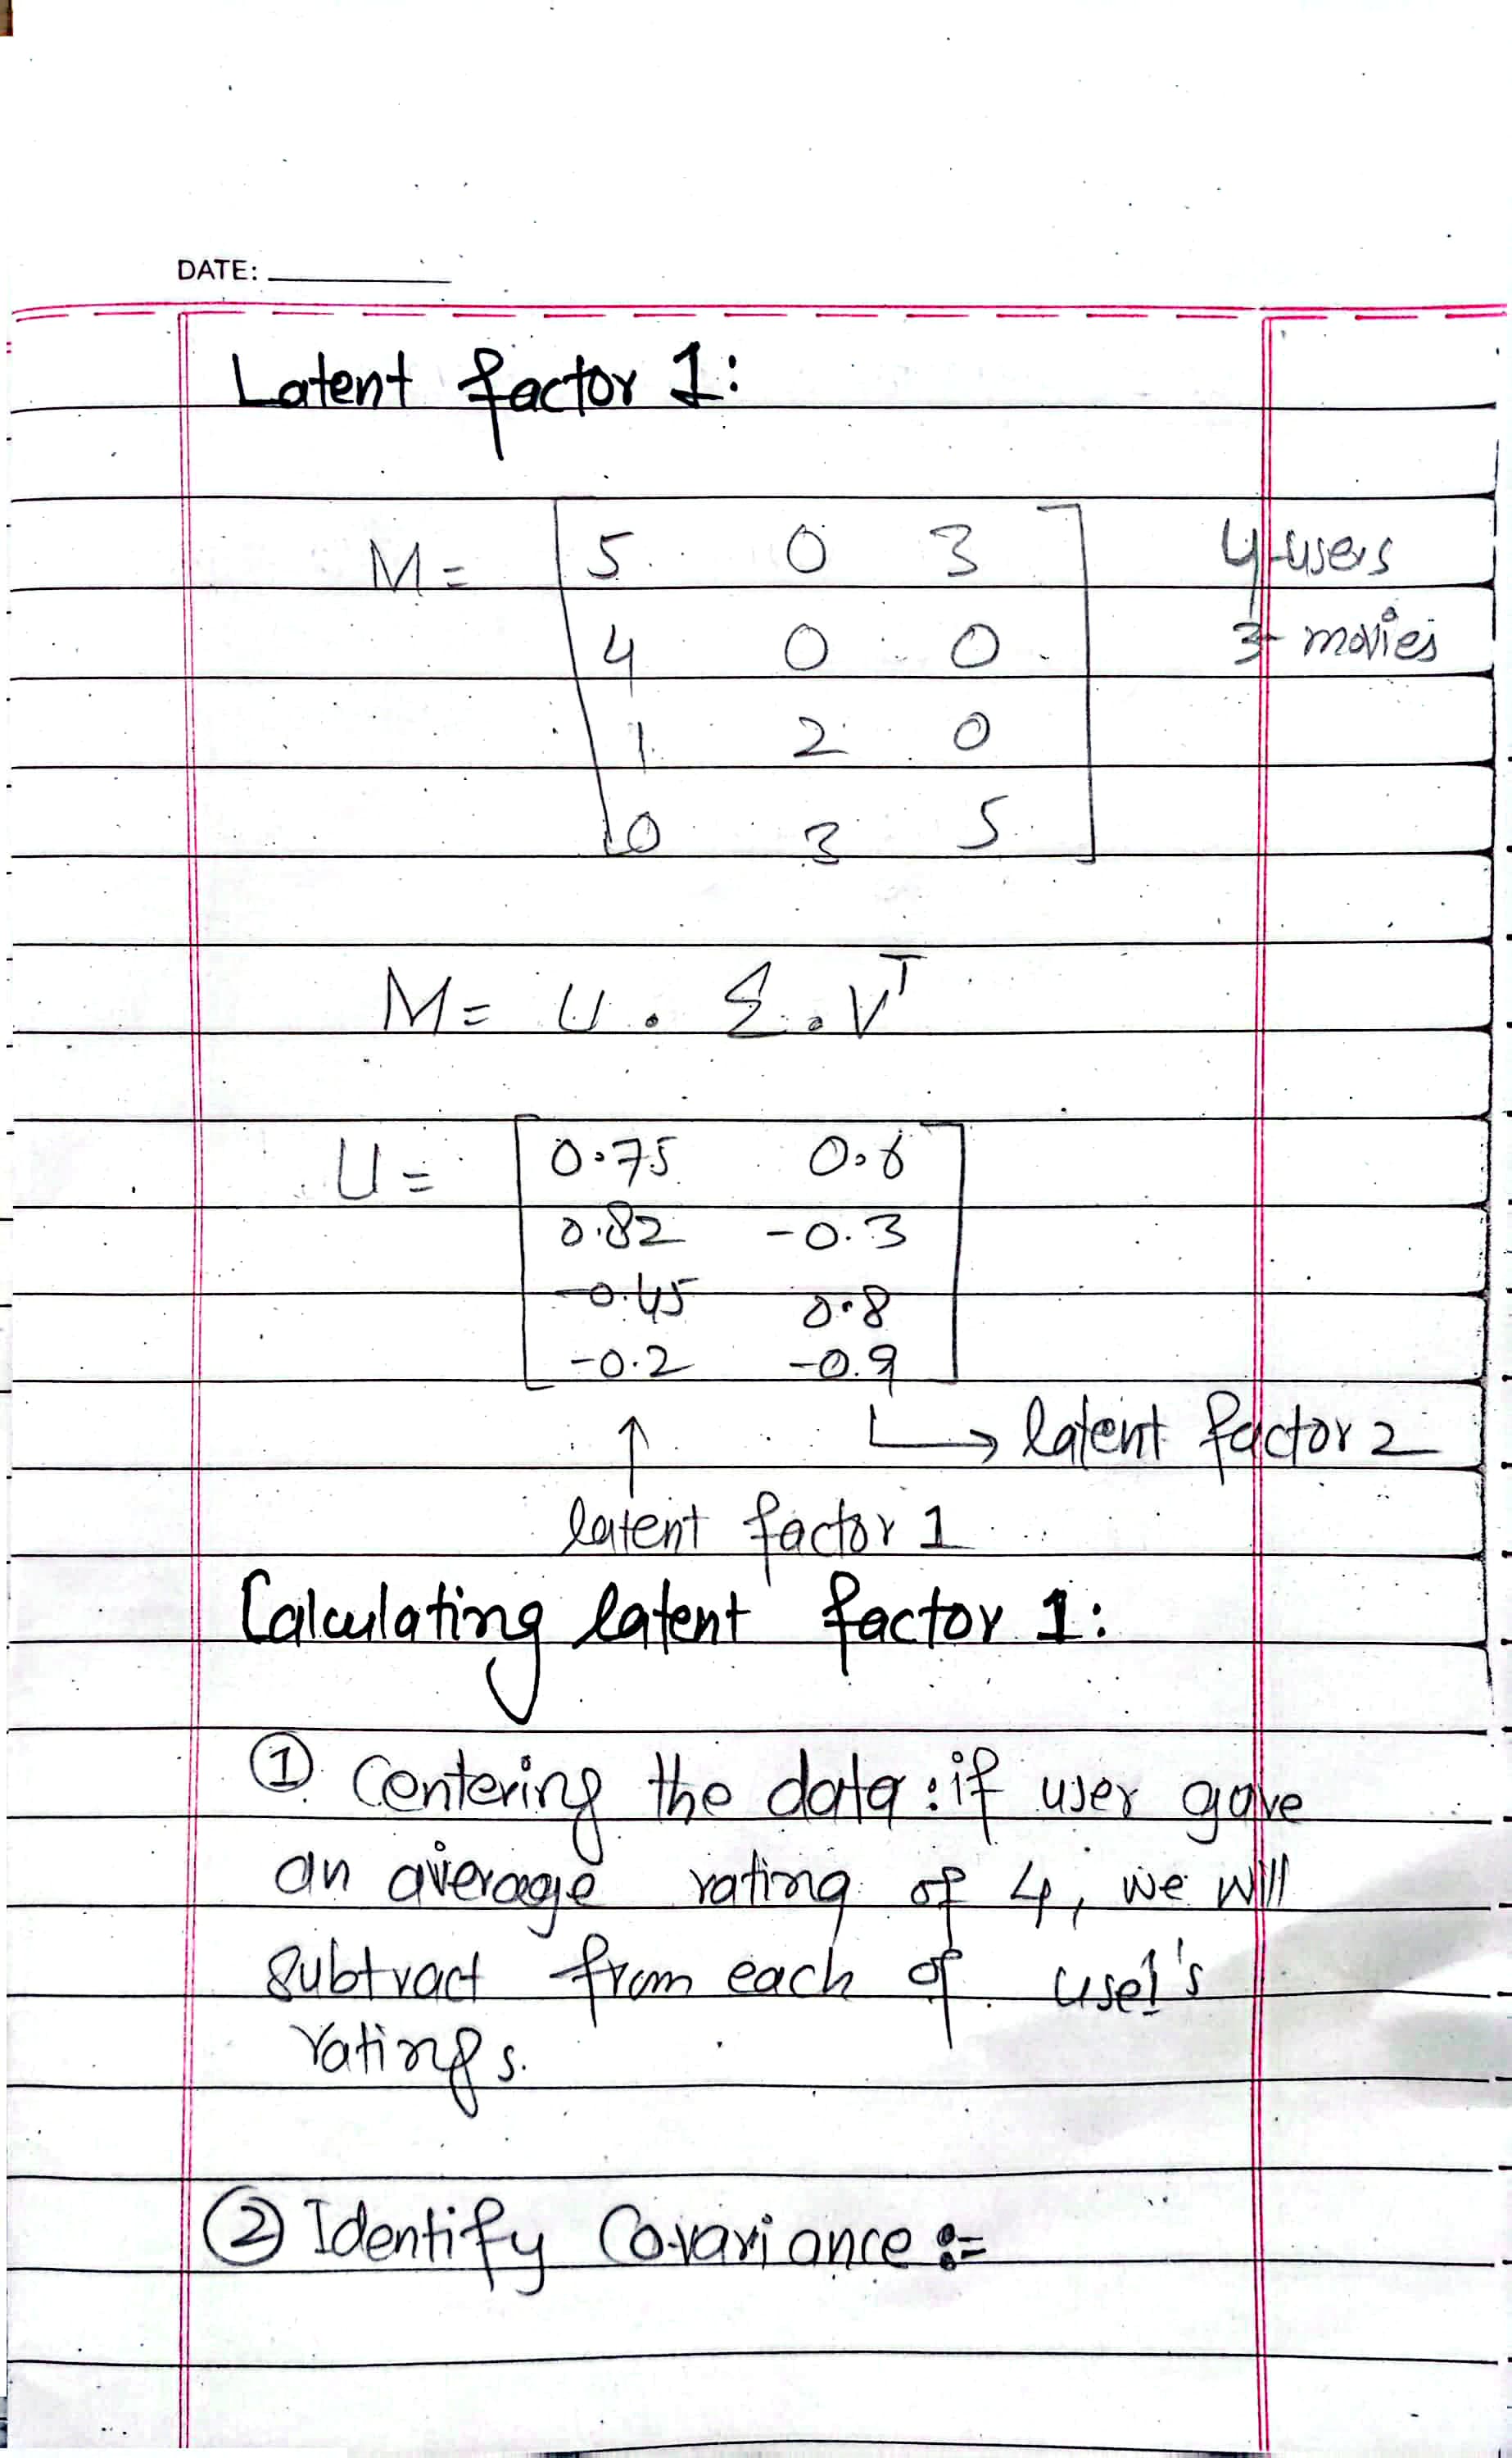 DATE:
Latent factor 1:
M = [ 5 0 3 4 users
4 0 0 3 movies
1 2 0
0 3 5 ]
M = U . Σ . V^T
U = [ 0.75 0.6
0.82 -0.3
-0.45 0.8
-0.2 -0.9 ]
↑ ↳ latent factor 2
latent factor 1
Calculating latent factor 1:
① Centering the data: if user gave
an average rating of 4, we will
subtract from each of user's
ratings.
② Identify Covariance :=